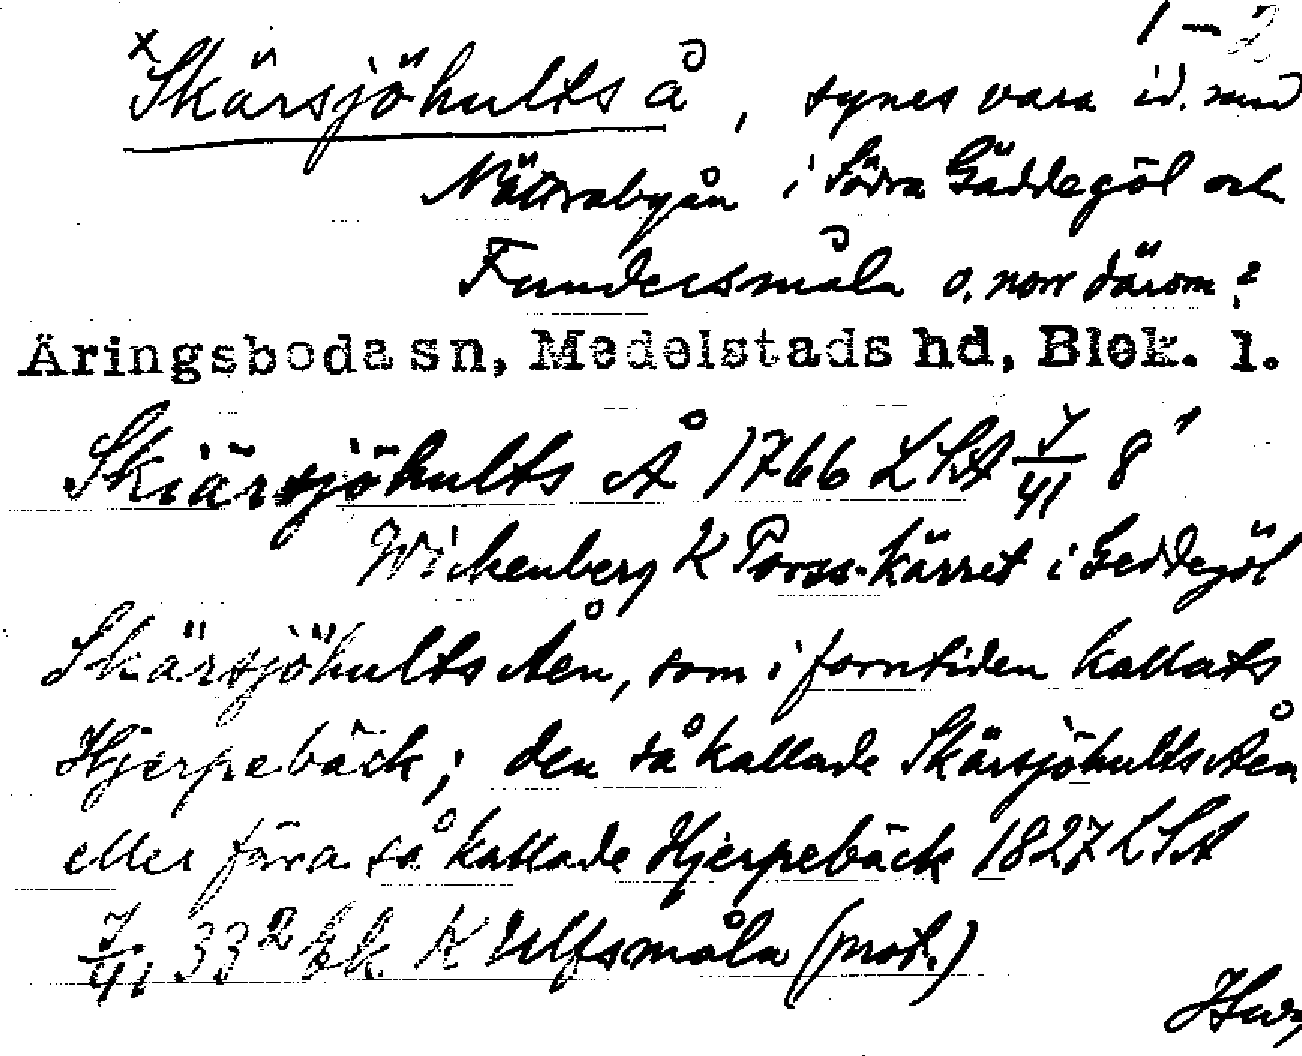 1-2
x Skärsjöhults å, synes vara id. med
Nättrabyån i Södra Gäddegöl och
Fundersmåla o. norr därom?
Äringsboda sn, Medelstads hd, Blek. l.
Skiärsjöhults Å 1766 LSA J/41 8¹
Wichenberg K Porss-kärret i Geddegöl
Skärsjöhults Åen, som i forntiden kallats
Hjerpebäck; den så kallade Skärsjöhults Åen
eller förra så kallade Hjerpebäck 1827 LSA
J/41 33² bk K Ulfsmåla (prot.)